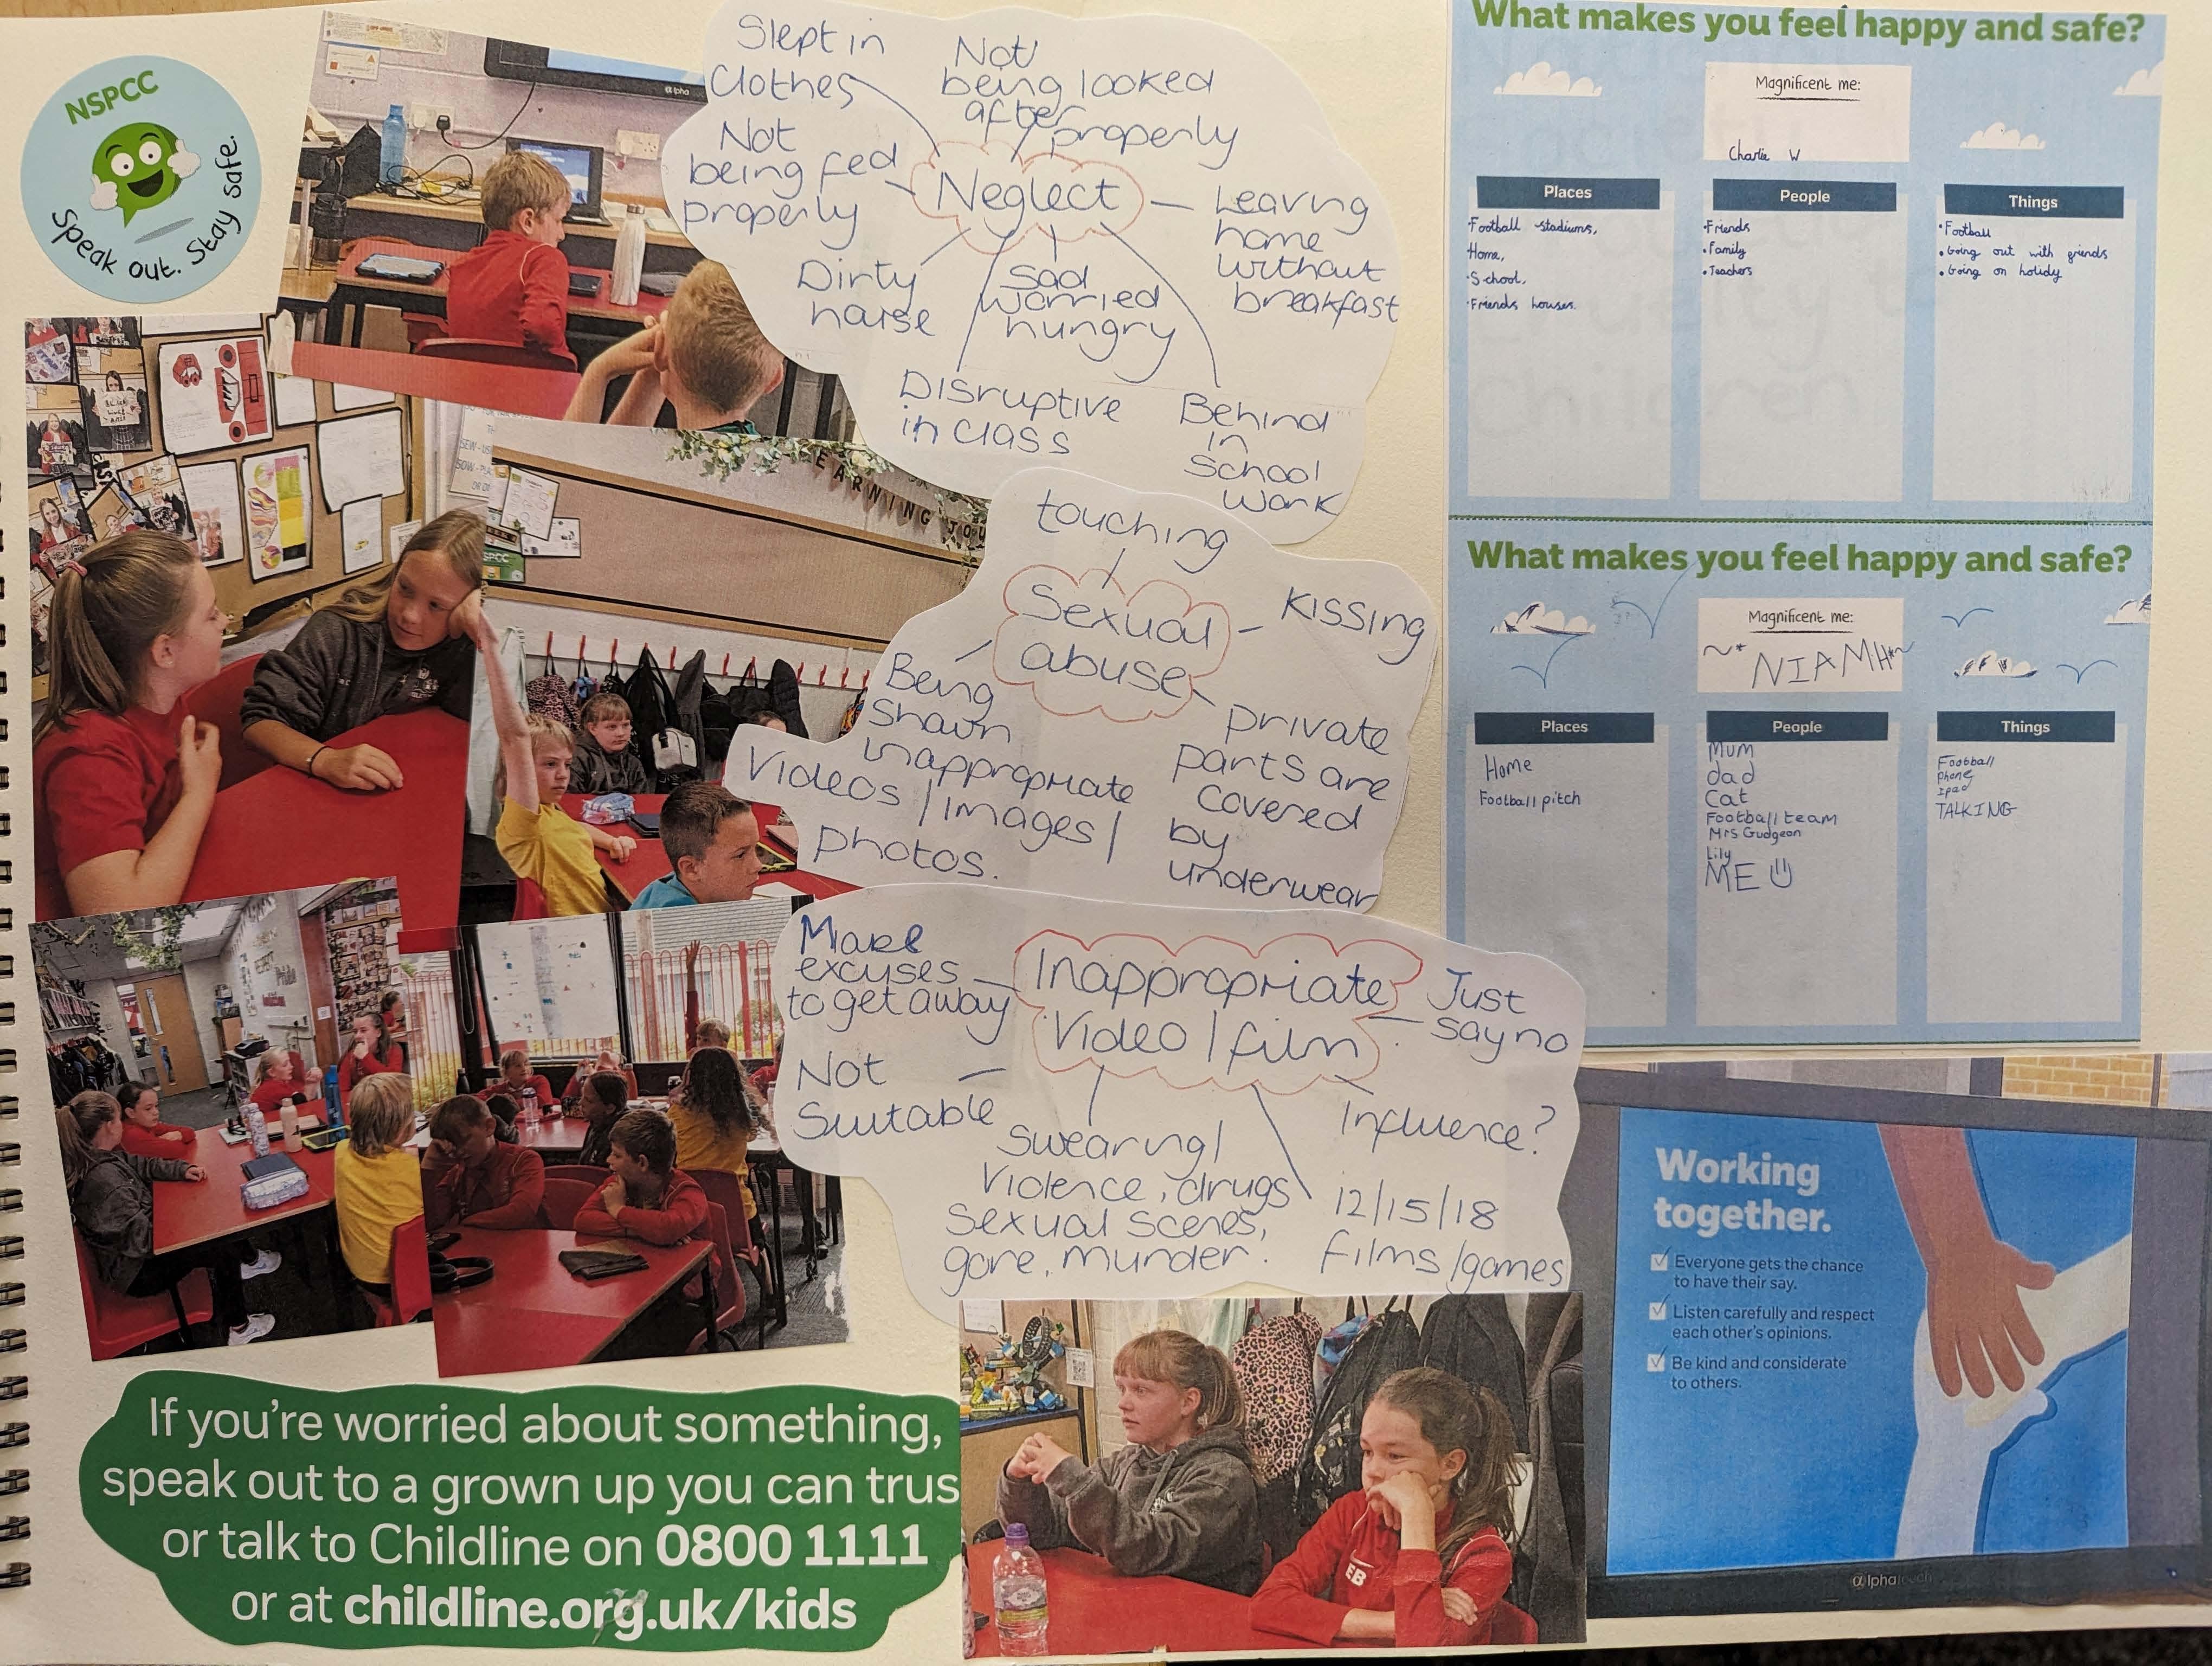 NSPCC
Speak out. Stay safe.
αlpha
Slept in
Clothes
Not
being looked
after
properly
Not
being fed
properly
Neglect
Leaving
home
without
breakfast
Dirty
house
Sad
worried
hungry
Disruptive
in class
Behind
in
School
work
LEARNING JOU
touching
Sexual
abuse
Kissing
Being
shown
inappropriate
Videos / images /
photos.
private
parts are
covered
by
underwear
Make
excuses
to get away
Inappropriate
Video / film
Just
say no
Not
Suitable
Swearing /
Violence, drugs
Sexual scenes,
gore, murder.
Influence?
12/15/18
films / games
What makes you feel happy and safe?
Magnificent me:
Charlie W
Places
• Football stadiums,
Home,
• School,
• Friends houses.
People
• Friends
• Family
• Teachers
Things
• Football
• Going out with friends
• Going on holidy
What makes you feel happy and safe?
Magnificent me:
~* NIAMH *~
Places
Home
Football pitch
People
Mum
dad
Cat
Football team
Mrs Gudgeon
Lily
ME
Things
Football
Phone
Ipad
TALKING
Working
together.
Everyone gets the chance
to have their say.
Listen carefully and respect
each other's opinions.
Be kind and considerate
to others.
αlpha
EB
If you're worried about something,
speak out to a grown up you can trus
or talk to Childline on 0800 1111
or at childline.org.uk/kids